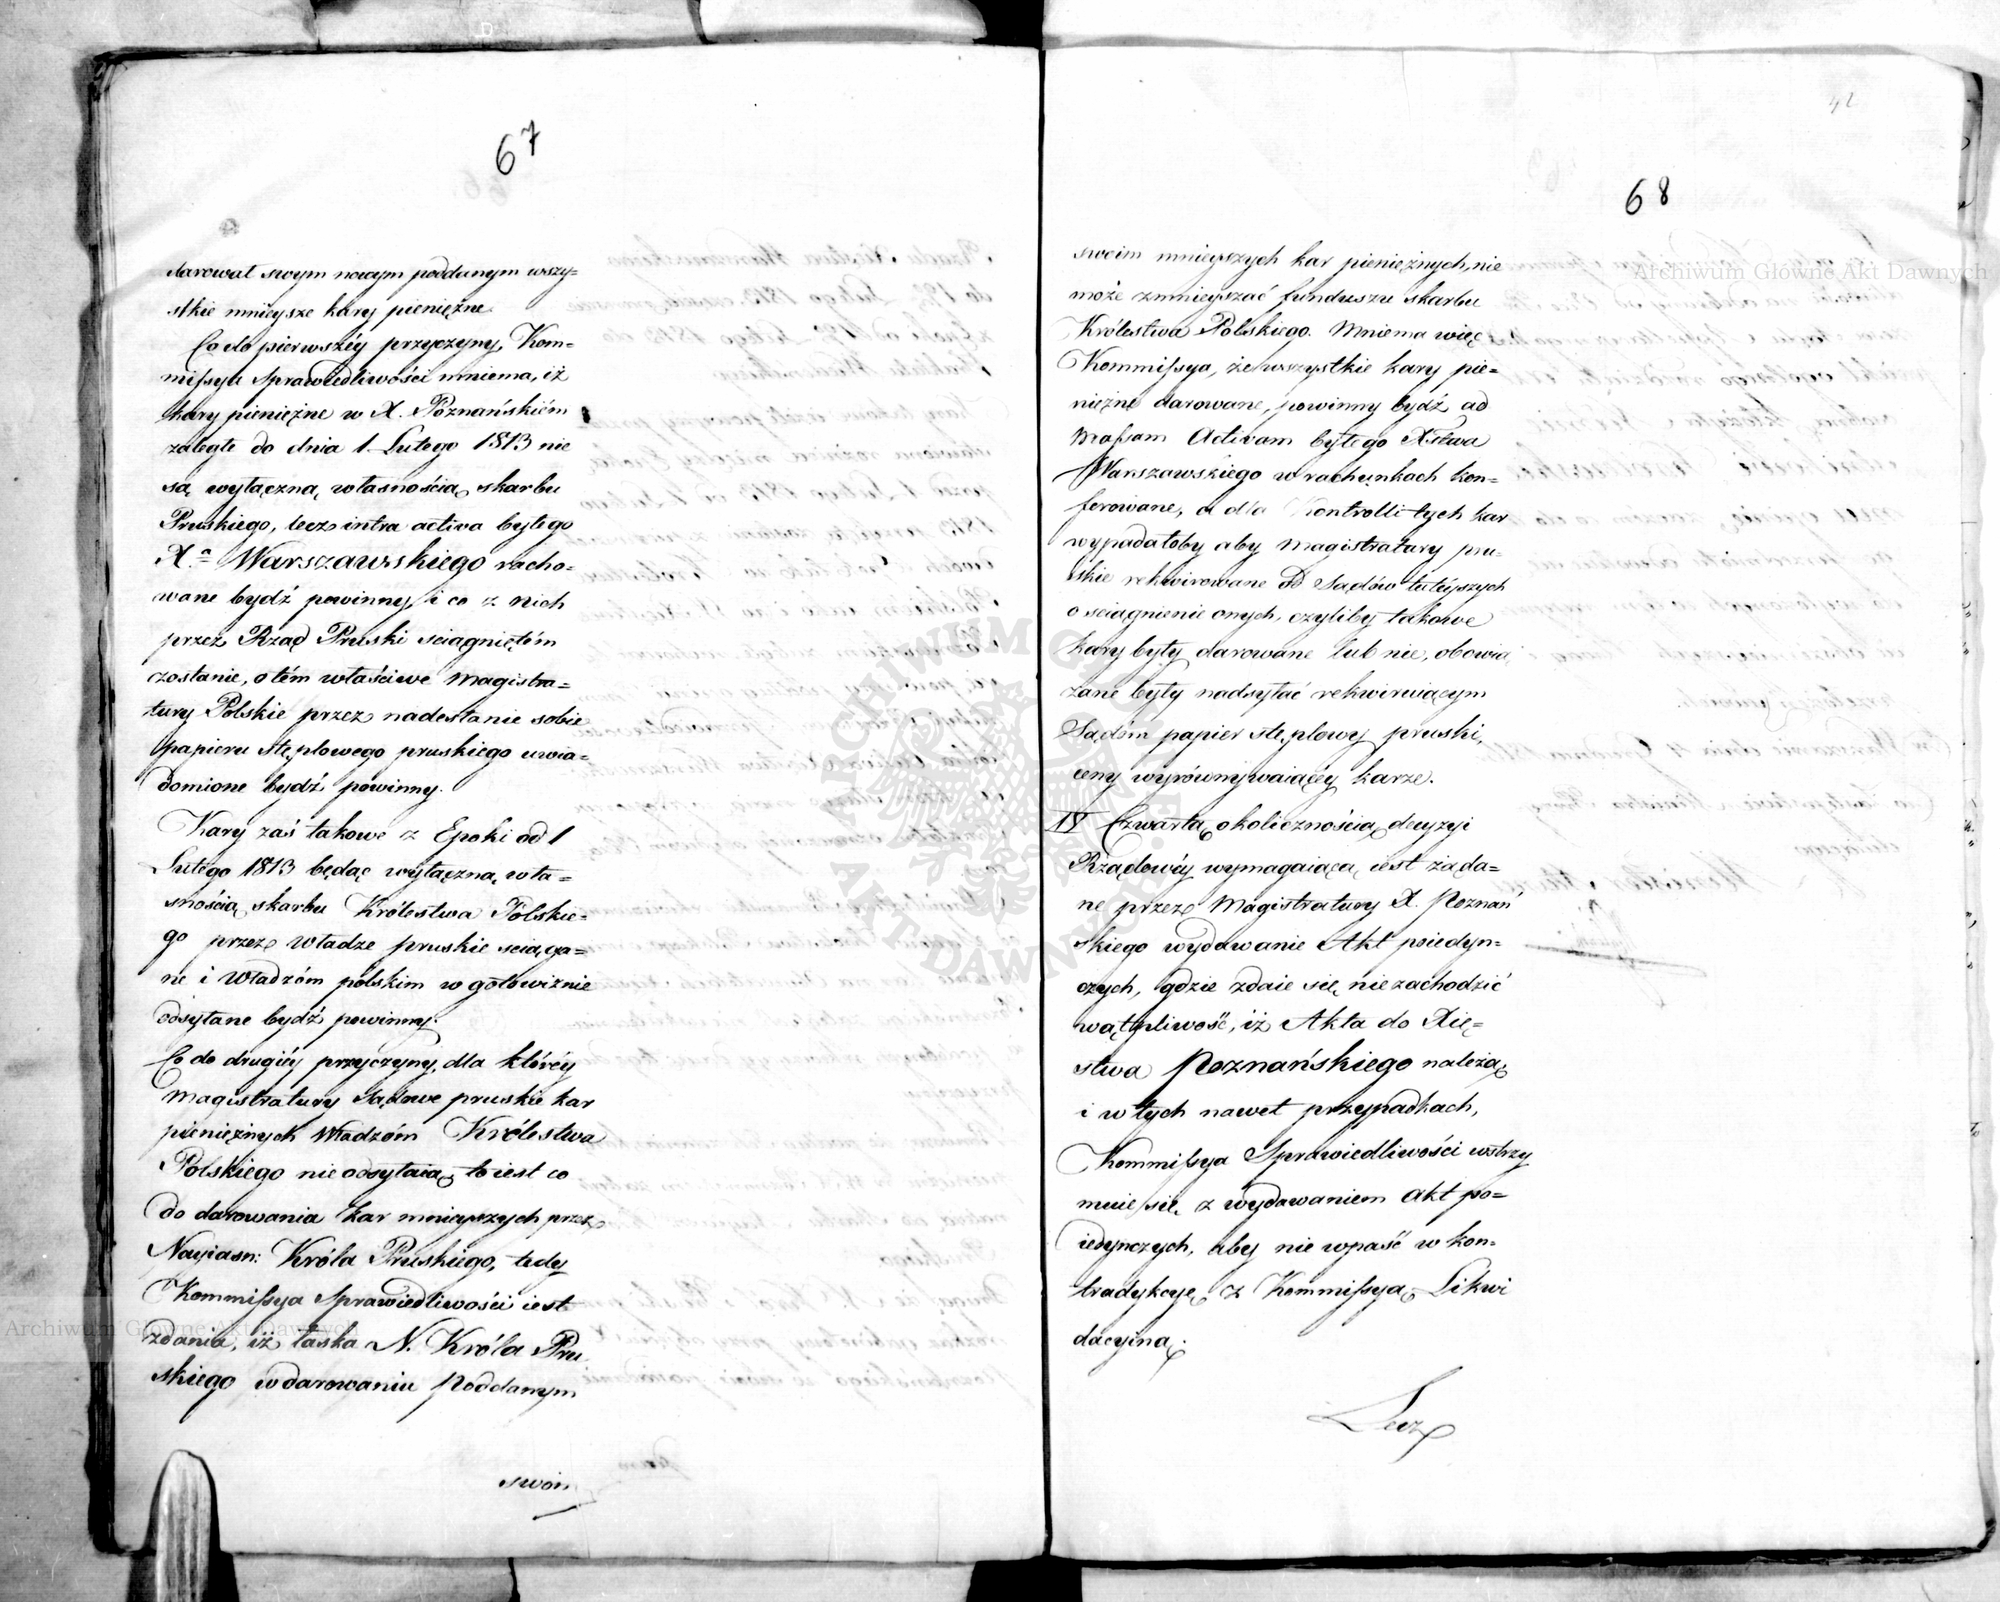 67
darował swym nowym poddanym wszy=
stkie mnieysze kary pieniężne
Co do pierwszéy przyczyny, Kom=
missya Sprawiedliwości mniema, iż
kary pieniężne w X. Poznańskiém
zaległe do dnia 1 Lutego 1813 nie
są wyłączną własnością skarbu
Pruskiego, lecz intra activa byłego
X.a Warszawskiego racho=
wane bydź powinny, i co z nich
przez Rząd Pruski sciągniętém
zostanie, o tém właściwe Magistra=
tury Polskie przez nadesłanie sobie
papieru stęplowego pruskiego uwia=
domione bydź powinny.
Kary zaś takowe z Epoki od 1
Lutego 1813 będąc wyłączną wła=
snością skarbu Królestwa Polskie=
go przez władze pruskie sciąga=
ne i Władzóm polskim w gotowiznie
odsyłane bydź powinny.
Co do drugiéy przyczyny, dla któréy
Magistratury Sądowe pruskie kar
pieniężnych Władzóm Królestwa
Polskiego nie odsyłaią, to iest co
do darowania kar mnieyszych przez
Nayiasn: Króla Pruskiego, tedy
Kommissya Sprawiedliwości iest
zdania, iż łaska N. Króla Pru
skiego w darowaniu Poddanym
swoim
42
68
swoim mnieyszych kar pieniężnych, nie
może zmnieyszać funduszu skarbu
Królestwa Polskiego. Mniema więc
Kommissya, że wszystkie kary pie=
niężne darowane, powinny bydź ad
Massam Activam byłego Xstwa
Warszawskiego w rachunkach kon=
ferowane, a dla Kontrolli tych kar
wypadałoby aby Magistratury pru=
skie rekwirowane od Sądów tuteyszych
o sciągnienie onych, czyliby takowe
kary były darowane lub nie, obowią
zane były nadsyłać rekwiruiącym
Sądóm papier stęplowy pruski,
ceny wyrównywaiącéy karze.
IV Czwartą okolicznością decyzyi
Rządowéy wymagaiącą iest żąda=
ne przez Magistratury X. Poznań
skiego wydawanie Akt poiedyn=
czych, gdzie zdaie się niezachodzić
wątpliwość, iż Akta do Xię=
stwa Poznańskiego należą,
i w tych nawet przypadkach,
Kommissya Sprawiedliwości wstrzy
muie się z wydawaniem Akt po=
iedynczych, aby nie wpaść w kon=
tradykcyę z Kommissyą Likwi
dacyiną.
Lecz
Archiwum Główne Akt Dawnych
Archiwum Główne Akt Dawnych
ARCHIWUM GŁÓWNE AKT DAWNYCH